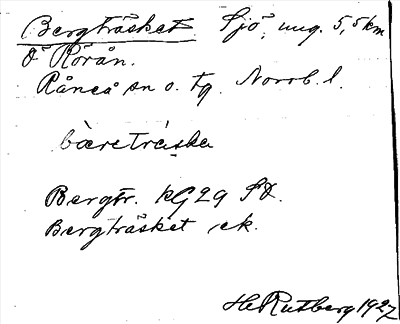 Bergträsket Sjö, ung. 5,5 km
Ö Rörån.
Råneå sn o. tg. Norrb. l.
bæretræska
Bergtr. KG 29 SO.
Bergträsket, ek.
H. Rutberg 1927